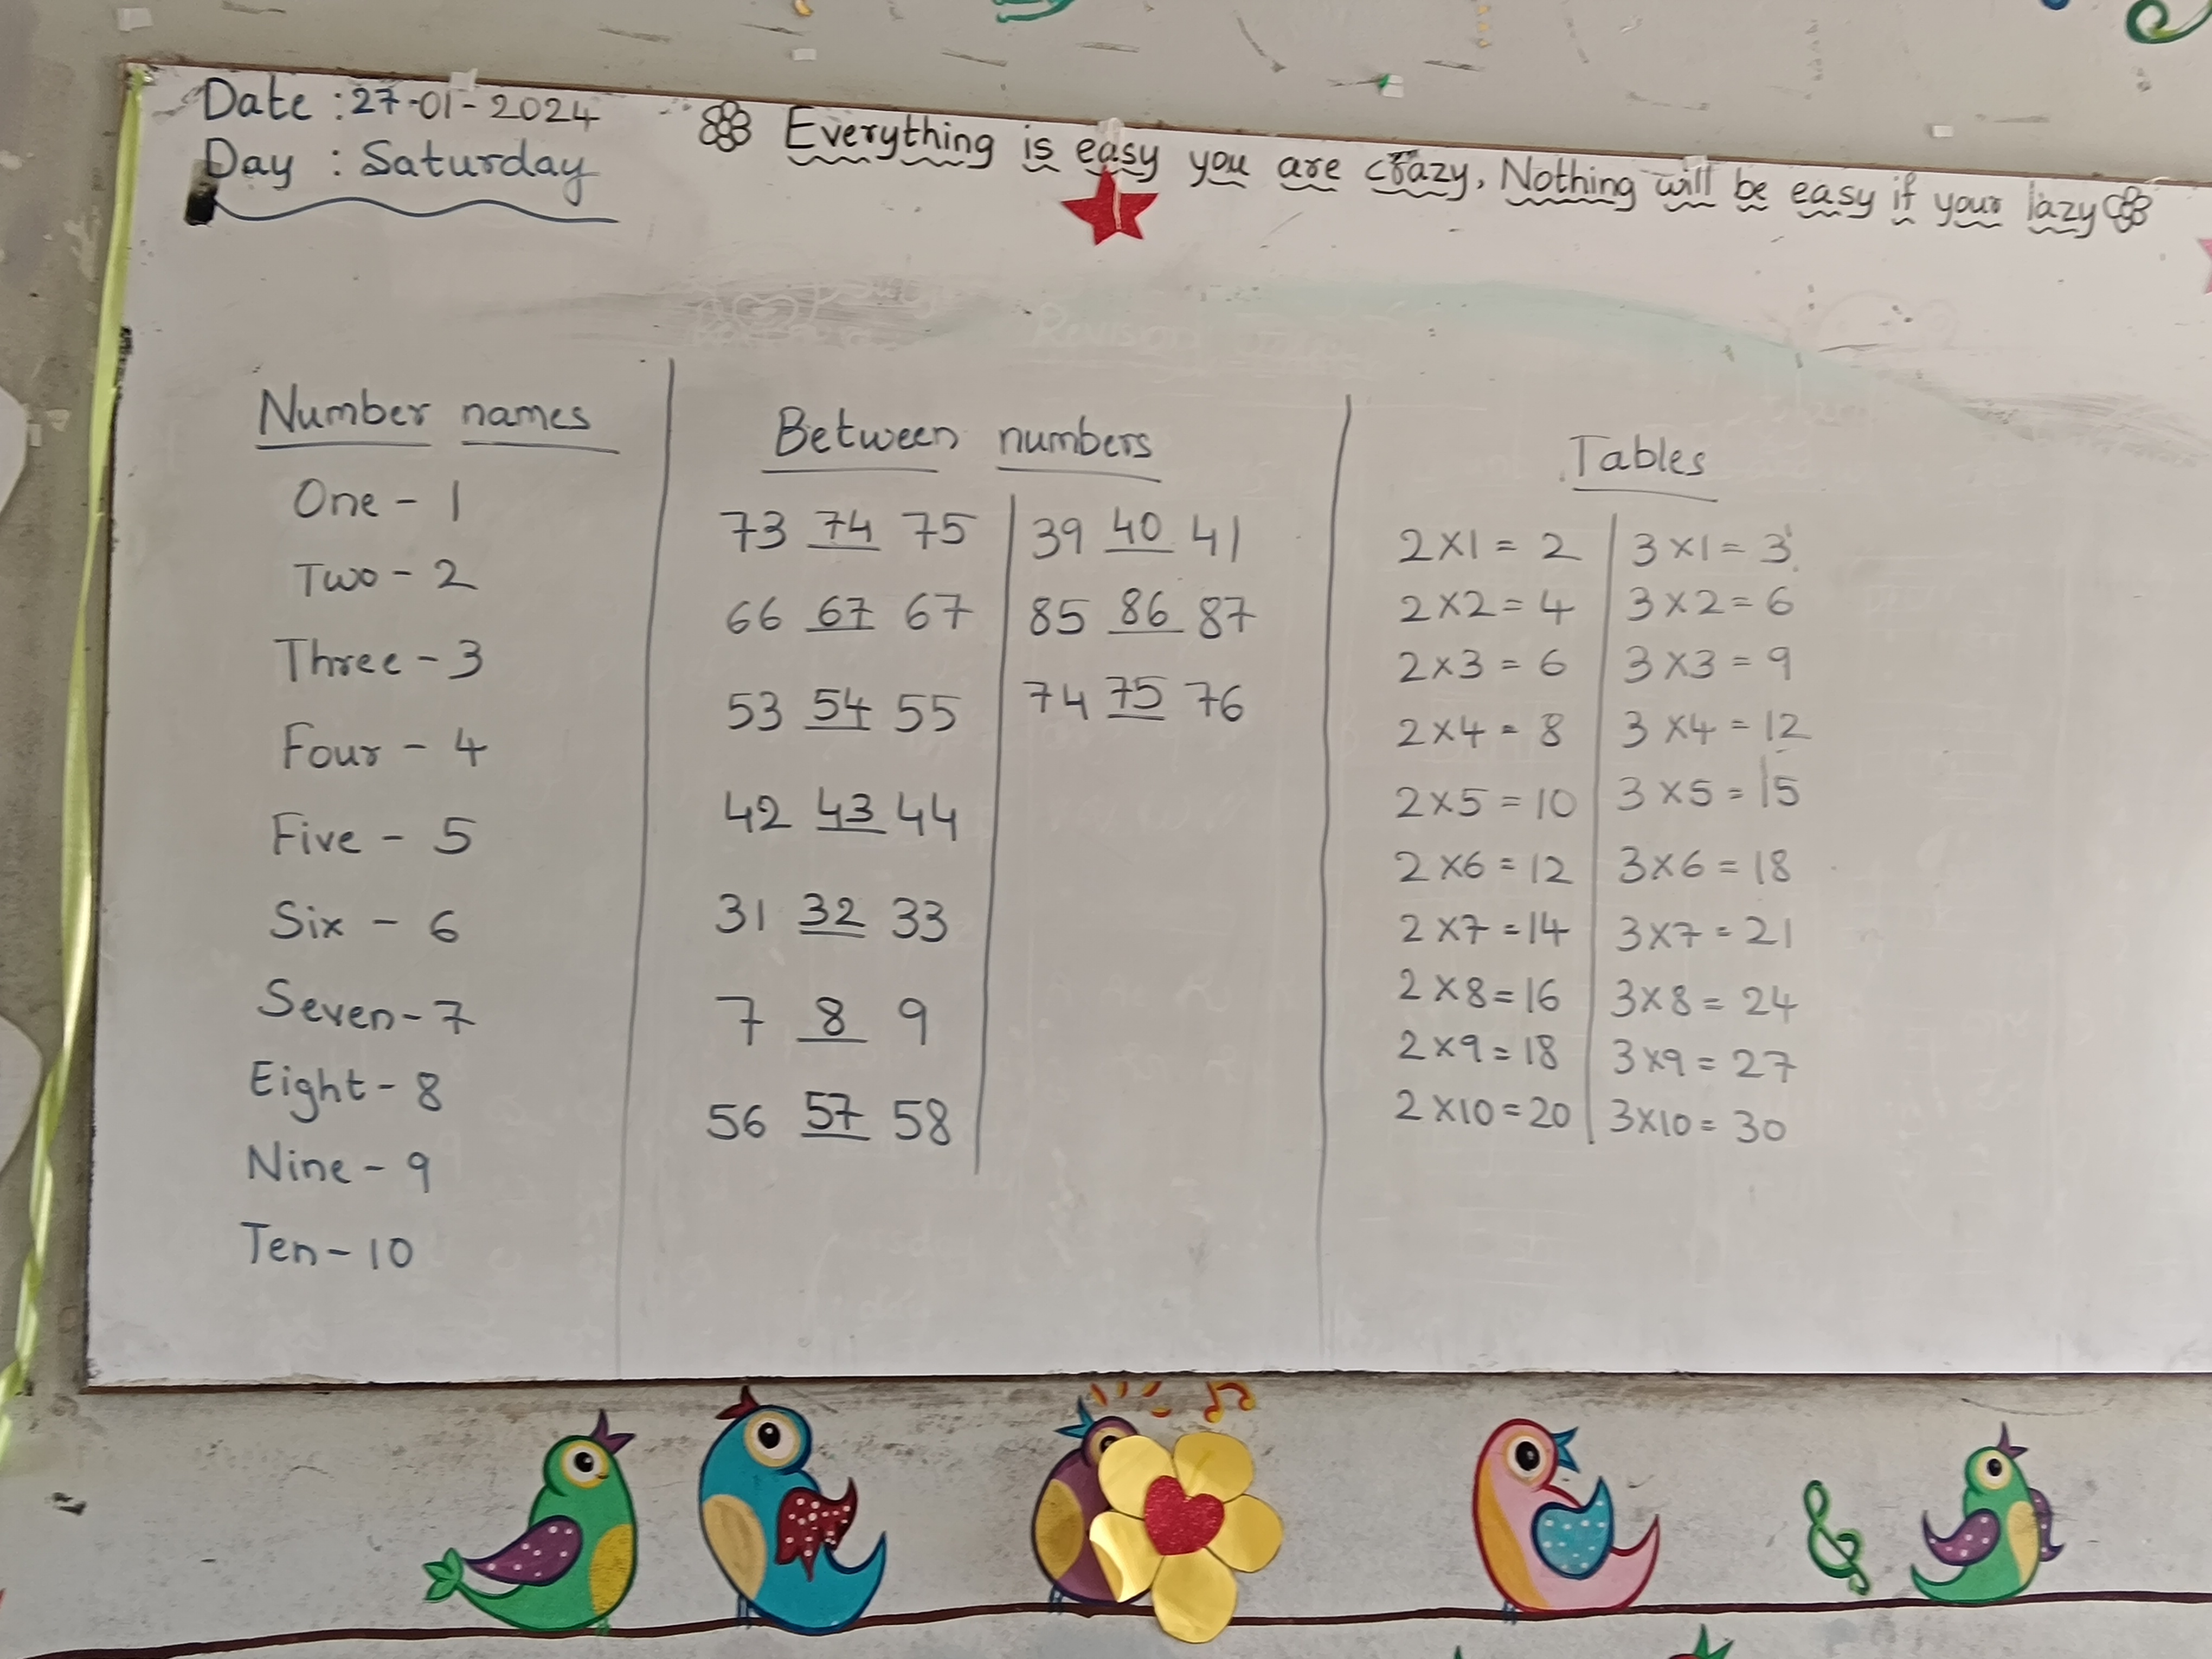 Date : 27-01-2024
Day : Saturday
Everything is easy you are crazy, Nothing will be easy if your lazy
Number names
One - 1
Two - 2
Three - 3
Four - 4
Five - 5
Six - 6
Seven - 7
Eight - 8
Nine - 9
Ten - 10
Between numbers
73 74 75
66 67 67
53 54 55
42 43 44
31 32 33
7 8 9
56 57 58
39 40 41
85 86 87
74 75 76
Tables
2 x 1 = 2
2 x 2 = 4
2 x 3 = 6
2 x 4 = 8
2 x 5 = 10
2 x 6 = 12
2 x 7 = 14
2 x 8 = 16
2 x 9 = 18
2 x 10 = 20
3 x 1 = 3
3 x 2 = 6
3 x 3 = 9
3 x 4 = 12
3 x 5 = 15
3 x 6 = 18
3 x 7 = 21
3 x 8 = 24
3 x 9 = 27
3 x 10 = 30